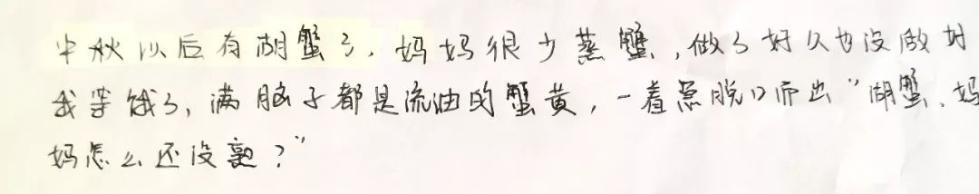 中秋以后有湖蟹了，妈妈很少蒸蟹，做了好久也没做好
我等饿了，满脑子都是流油的蟹黄，一着急脱口而出“湖蟹、妈
妈怎么还没熟？”